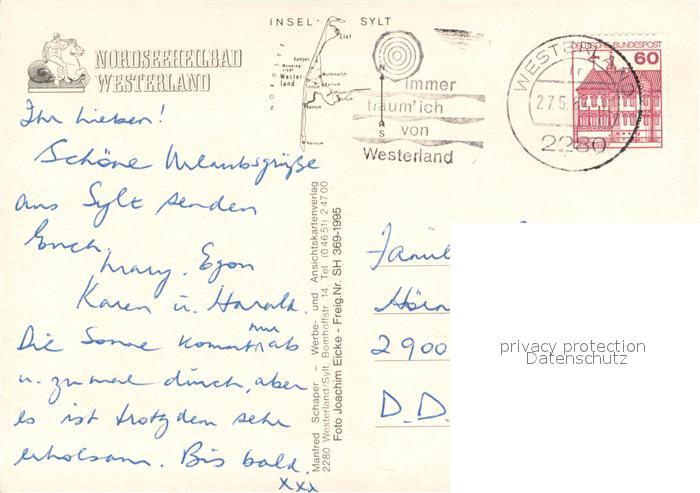 INSEL SYLT
List
NORDSEEHEILBAD
WESTERLAND
Kampen
Wester
land
Keitum
Morsum
Rantum
Hörnum
NORDSEE
N
S
Immer
träum' ich
von
Westerland
WESTERLAND
27.5.
2280
DEUTSCHE BUNDESPOST
60
Ihr Lieben!
Schöne Urlaubsgrüße
aus Sylt senden
Euch
Mary, Egon
Karen u. Harald.
Die Sonne kommt nur ab
u. zu mal durch, aber
es ist trotzdem sehr
erholsam. Bis bald.
xxx
Manfred Schaper - Werbe- und Ansichtskartenverlag
2280 Westerland/Sylt Bomhoffstr. 14. Tel. (04651) 24700
Foto Joachim Eicke - Freig.Nr. SH 369-1995
Famil
2900
D.D.
privacy protection
Datenschutz